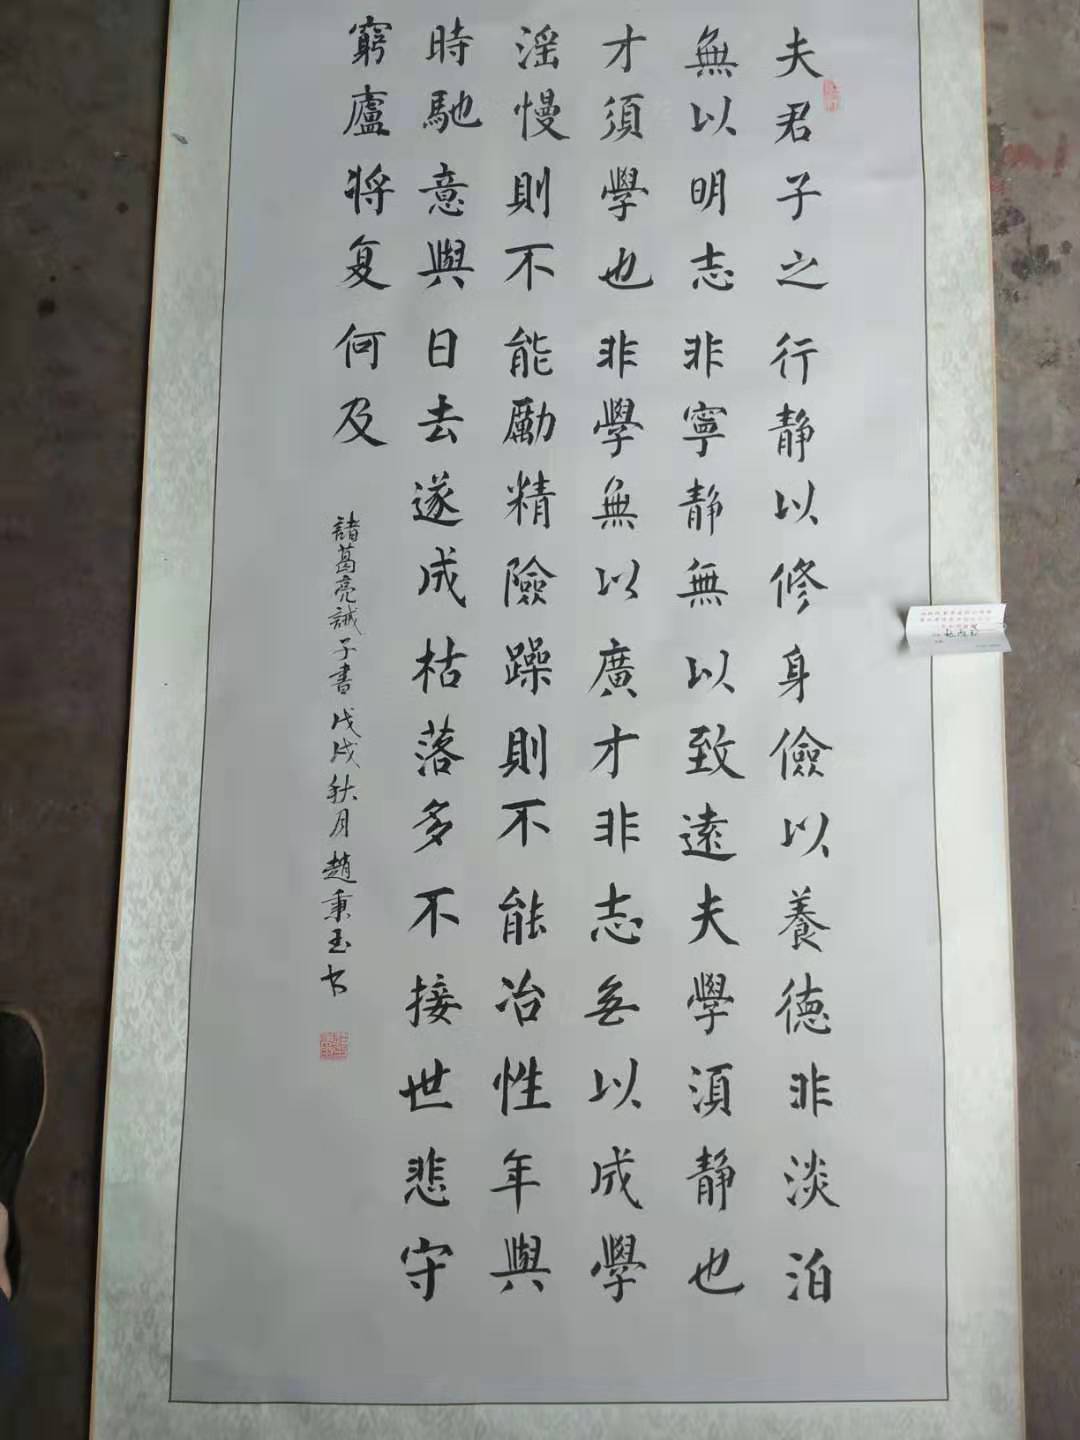 夫君子之行静以修身儉以養德非淡泊
無以明志非寧静無以致遠夫學須静也
才須學也非學無以廣才非志无以成學
淫慢則不能勵精險躁則不能冶性年與
時馳意與日去遂成枯落多不接世悲守
窮廬將复何及
諸葛亮誡子書戊戌秋月趙秉玉书